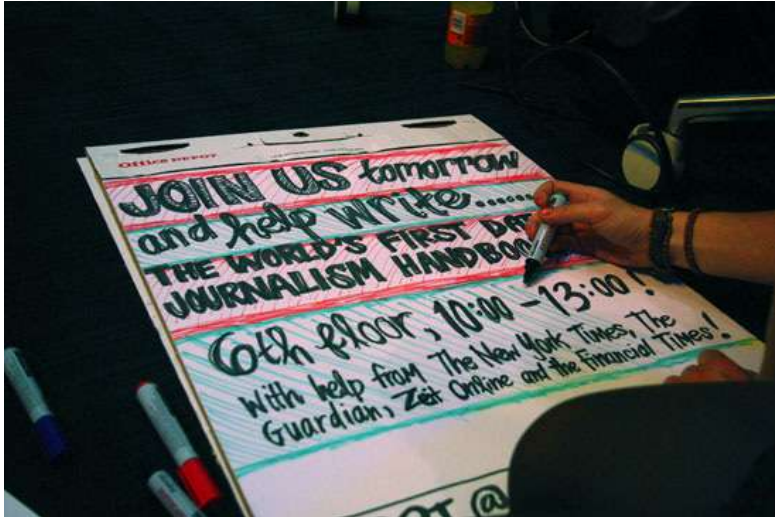 Office DEPOT
JOIN US tomorrow
and help write.......
THE WORLD'S FIRST
JOURNALISM
6th floor, 10:00-13:00!
With help from The New York Times, The
Guardian, Zeit Online and the Financial Times!
@